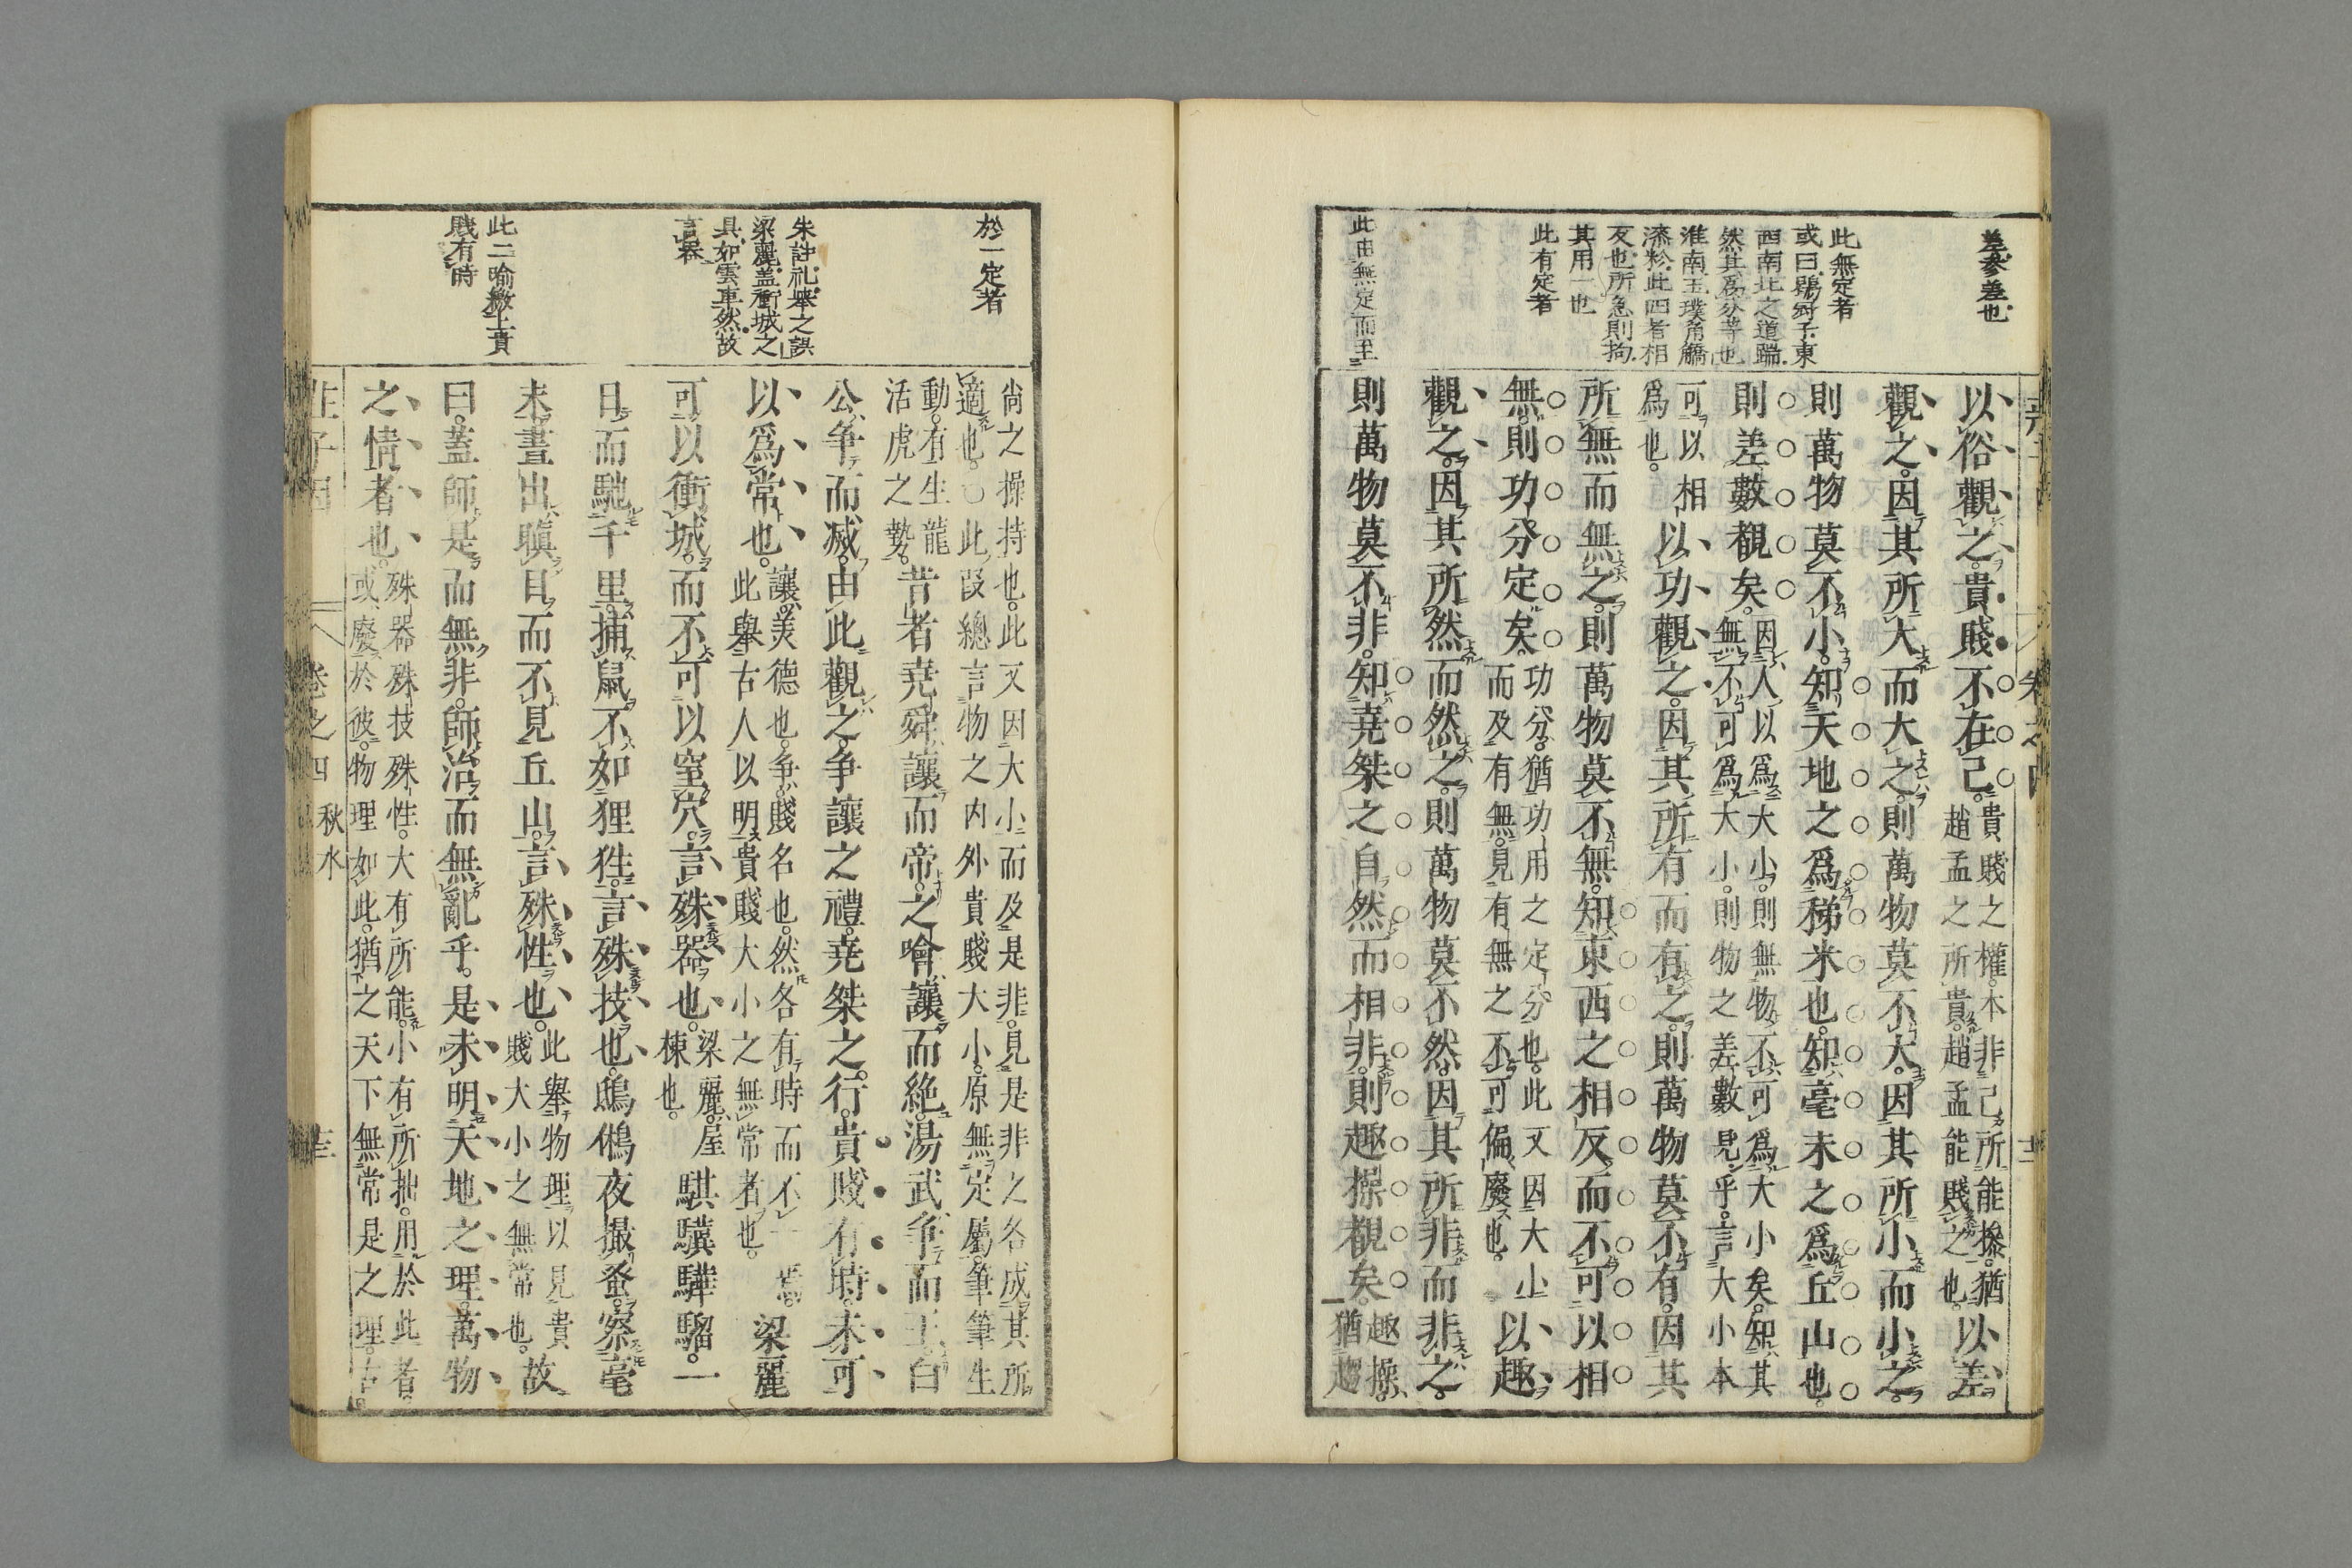 差參差也
此無定者
或曰鶡冠子東
西南北之道踹
然其爲分等也
淮南玉璞角觿
漆黔此四者相
反也所急則拘
其用一也
此有定者
此由無定而至
以俗觀之。貴賤不在己。貴賤之權。本非己所能操。猶
趙孟之所貴。趙孟能賤之也。以差
觀之。因其所大而大之。則萬物莫不大。因其所小而小之。
則萬物莫不小。知天地之爲稊米也。知毫末之爲丘山也。
則差數覩矣。因人以爲大小。則無物不可爲大小矣。知其
無不可爲大小。則物之差數見乎。言大小本
可以相
爲也。以功觀之。因其所有而有之。則萬物莫不有。因其
所無而無之。則萬物莫不無。知東西之相反而不可以相
無。則功分定矣。功分。猶功用之定分也。此又因大小
而及有無。見有無之不可偏廢也。以趣
觀之。因其所然而然之。則萬物莫不然。因其所非而非之。
則萬物莫不非。知堯桀之自然而相非。則趣操覩矣。趣操。
猶趨
於一定者
朱註礼舉之誤
梁麗蓋衝城之
具如雲車然故
言器
此二喻繳上貴
賤有時
尚之操持也。此又因大小而及是非。見是非之各成其所
適也。○此段總言物之内外貴賤大小。原無定屬。筆筆生
動。有生龍
活虎之勢。昔者堯舜讓而帝。之噲讓而絶。湯武爭而王。白
公爭而滅。由此觀之。爭讓之禮。堯桀之行。貴賤有時。未可
以爲常也。讓。美德也。爭。賤名也。然各有時而不一
此舉古人以明貴賤大小之無常者也。梁麗
可以衝城。而不可以窒穴。言殊器也。梁麗。屋
棟也。騏驥驊騮。一
日而馳千里。捕鼠不如狸狌。言殊技也。鴟鵂夜撮蚤。察毫
末。晝出瞋目而不見丘山。言殊性也。此舉物理以見貴
賤大小之無常也。故
曰。蓋師是而無非。師治而無亂乎。是未明天地之理。萬物
之情者也。殊器殊技殊性。大有所能。小有所拙。用於此者。
或廢於彼。物理如此。猶之天下無常是之理。古
莊子因
卷之四
秋水